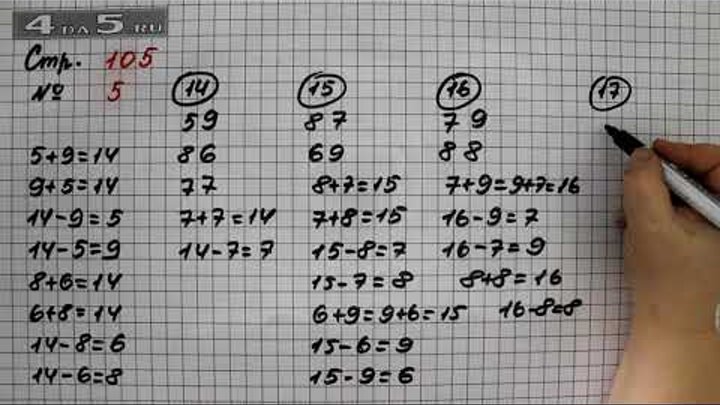 4 DA 5 .RU
Стр. 105
№ 5
5+9=14
9+5=14
14-9=5
14-5=9
8+6=14
6+8=14
14-8=6
14-6=8
14
59
86
77
7+7=14
14-7=7
15
87
69
8+7=15
7+8=15
15-8=7
15-7=8
6+9=9+6=15
15-6=9
15-9=6
16
79
88
7+9=9+7=16
16-9=7
16-7=9
8+8=16
16-8=8
17